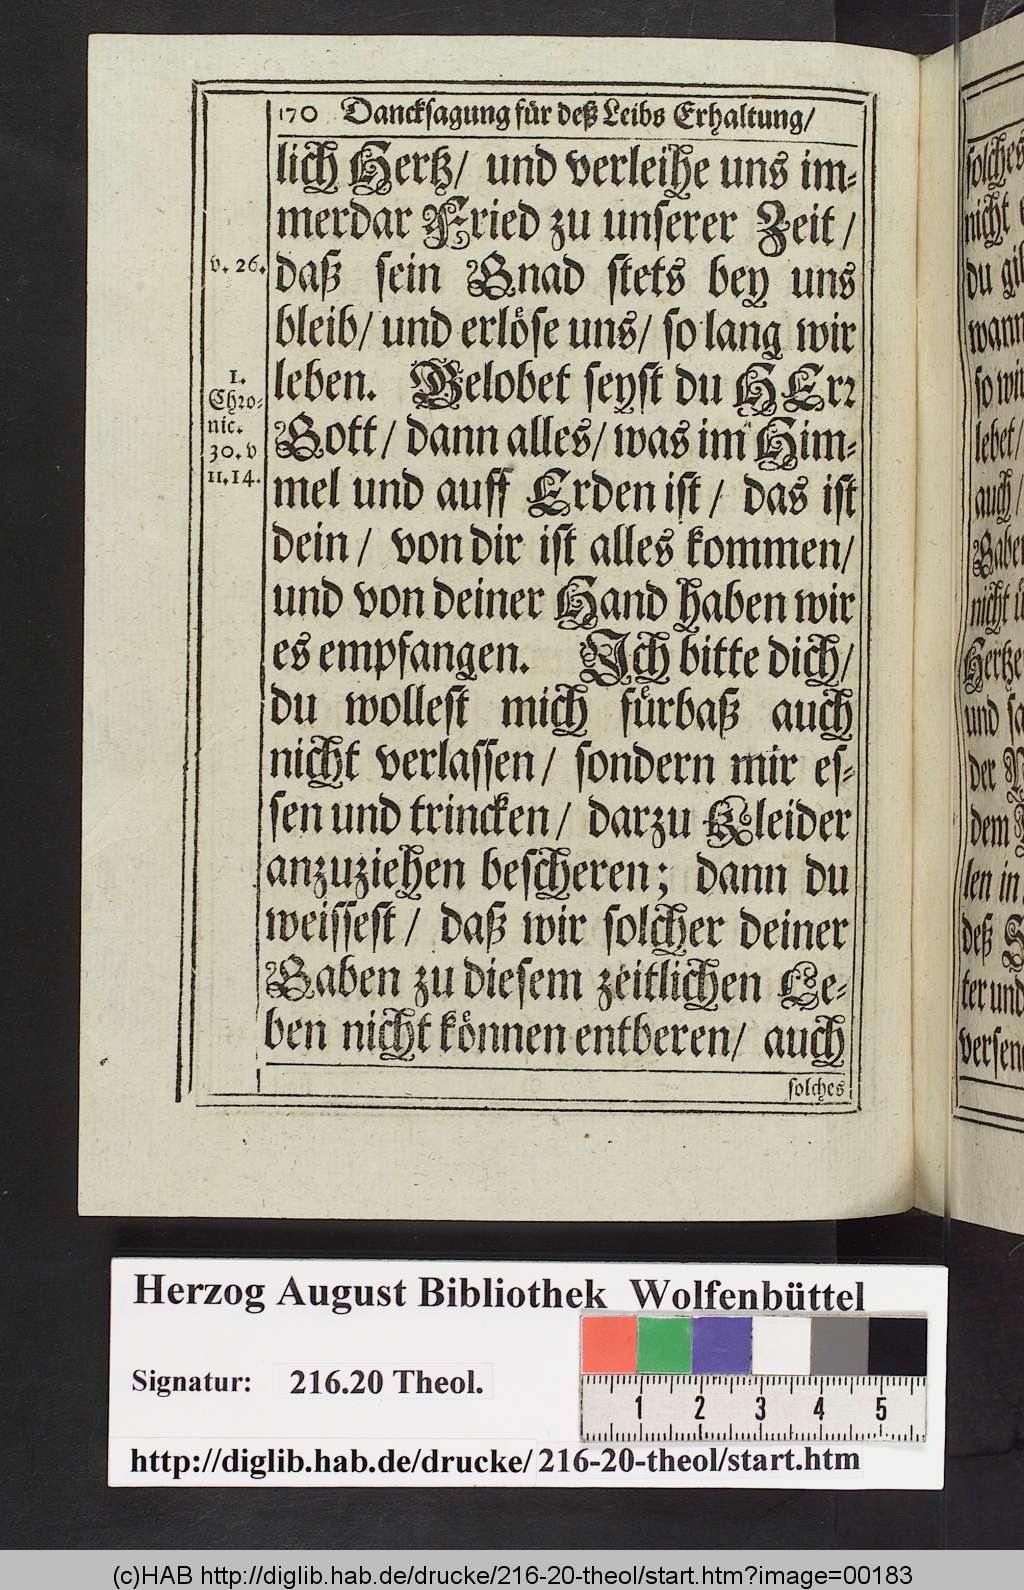 170 Danckſagung für deß Leibs Erhaltung/
lich Hertz/ und verleihe uns im-
merdar Fried zu unſerer Zeit /
v. 26.
daß ſein Gnad ſtets bey uns
bleib/ und erlöſe uns/ ſo lang wir
1.
Chro-
nic.
30. v
11. 14.
leben. Gelobet ſeyſt du HErr
Gott/ dann alles/ was im Him-
mel und auff Erden iſt / das iſt
dein / von dir iſt alles kommen/
und von deiner Hand haben wir
es empfangen. Ich bitte dich/
du wolleſt mich fürbaß auch
nicht verlaſſen/ ſondern mir eſ-
ſen und trincken/ darzu Kleider
anzuziehen beſcheren; dann du
weiſſeſt / daß wir ſolcher deiner
Gaben zu dieſem zeitlichen Le-
ben nicht können entberen/ auch
ſolches
ſolches
nicht
du
wann
ſo
lebet/
auch /
nicht
und
der
dem
len in
deß
ter und
Herzog August Bibliothek Wolfenbüttel
Signatur: 216.20 Theol.
1 2 3 4 5
http://diglib.hab.de/drucke/216-20-theol/start.htm
(c)HAB http://diglib.hab.de/drucke/216-20-theol/start.htm?image=00183